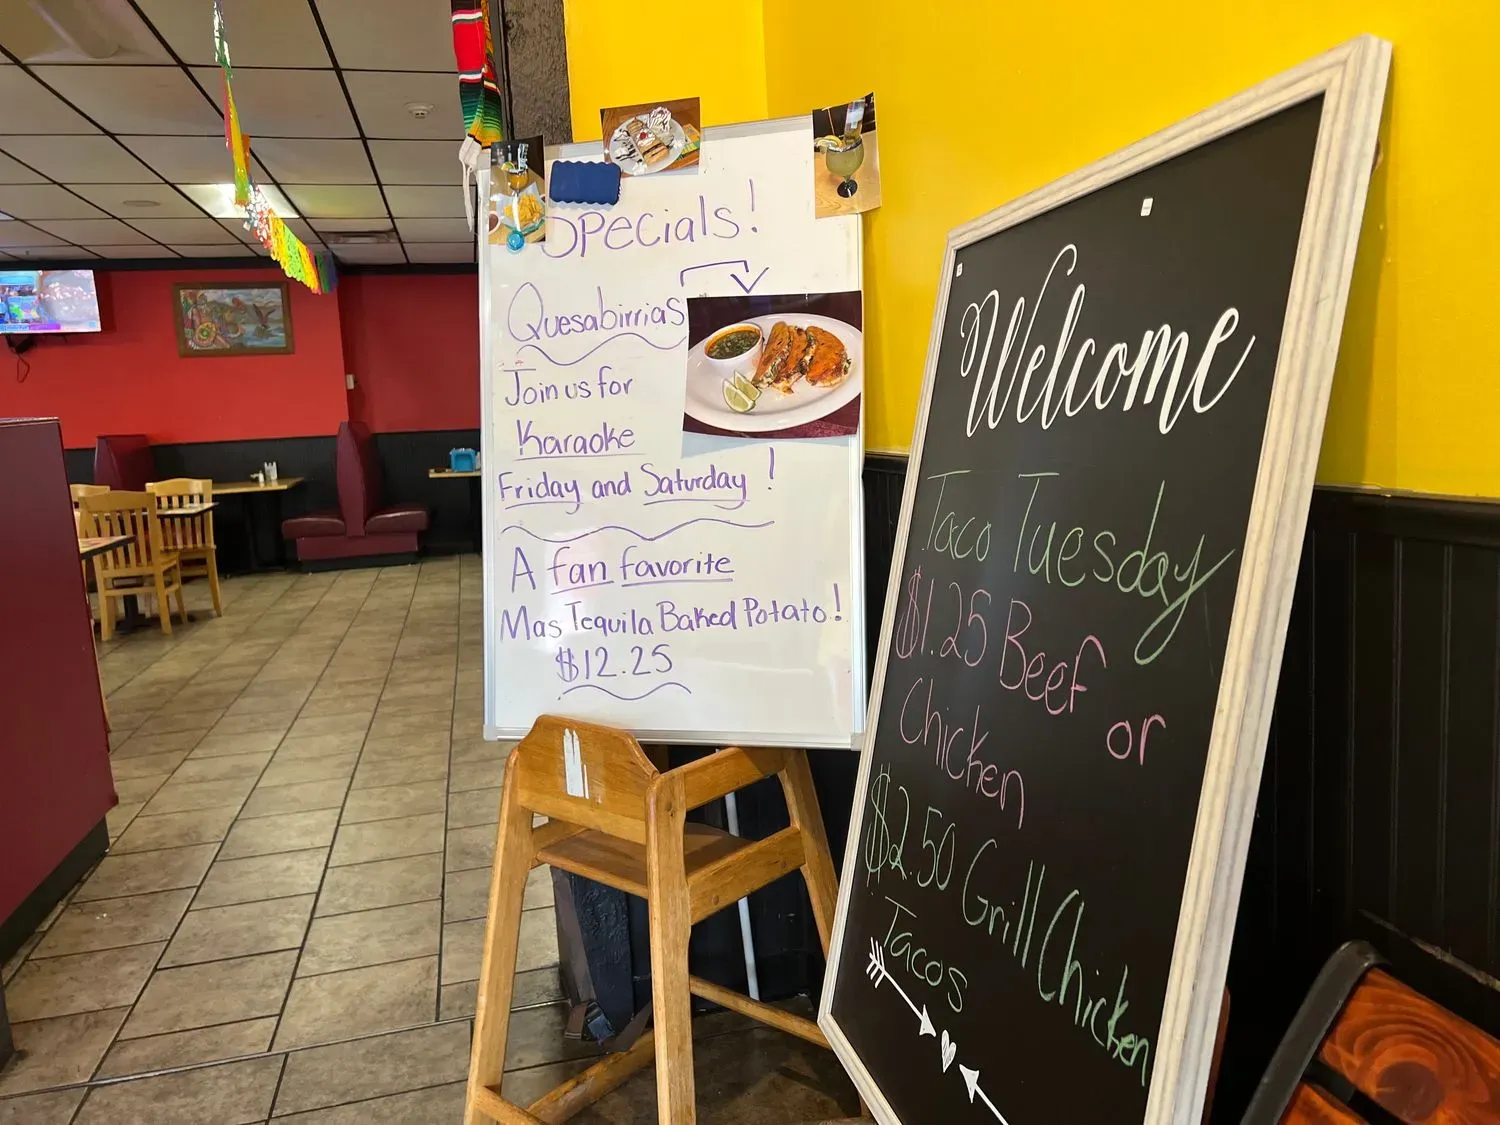 Specials!
Quesabirrias
Join us for
Karaoke
Friday and Saturday!
A fan favorite
Mas Tequila Baked Potato!
$12.25
Welcome
Taco Tuesday
$1.25 Beef or
Chicken
$2.50 Grill Chicken
Tacos